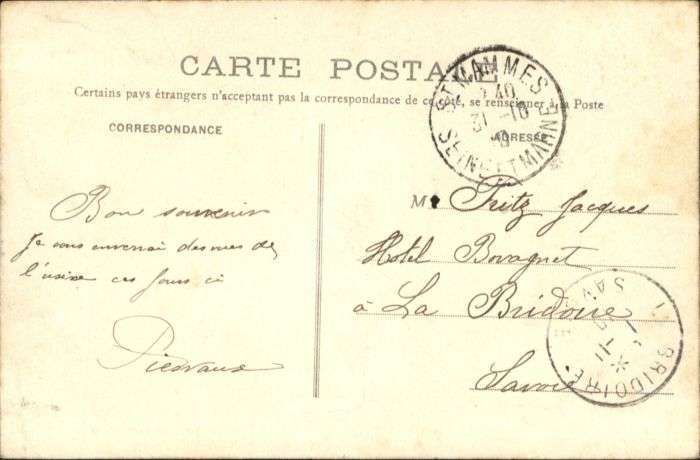 CARTE POSTALE
Certains pays étrangers n'acceptant pas la correspondance de ce côté, se renseigner à la Poste
CORRESPONDANCE
ADRESSE
Bon souvenir
Je vous enverrai des vues de
l'usine ces jours ci
M. Fritz Jacques
Hotel Bovagnet
à La Bridoire
Savoie
ST MAMMÈS
SEINE ET MARNE
31 -10
LA BRIDOIRE
SAV